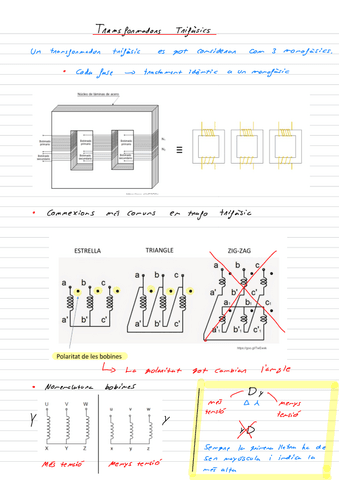 Transformadors Trifàsics
Un transformador trifàsic es pot considerar com 3 monofàsics.
• Cada fase → tractament idèntic a un monofàsic
Núcleo de láminas de acero
≡
• Connexions més comuns en trafo trifàsic
ESTRELLA TRIANGLE ZIG-ZAG
a b c a b c a b c
a' b' c' a' b' c' a' b' c'
Polaritat de les bobines
↳ La polaritat pot cambiar l'angle
• Nomenclatura bobines
U V W u v w
Y Y
X Y Z x y z
Més tensió Menys tensió
Dy
més tensió menys tensió
yD
Sempre la primera lletra ha de
ser mayúscula i indica la
més alta